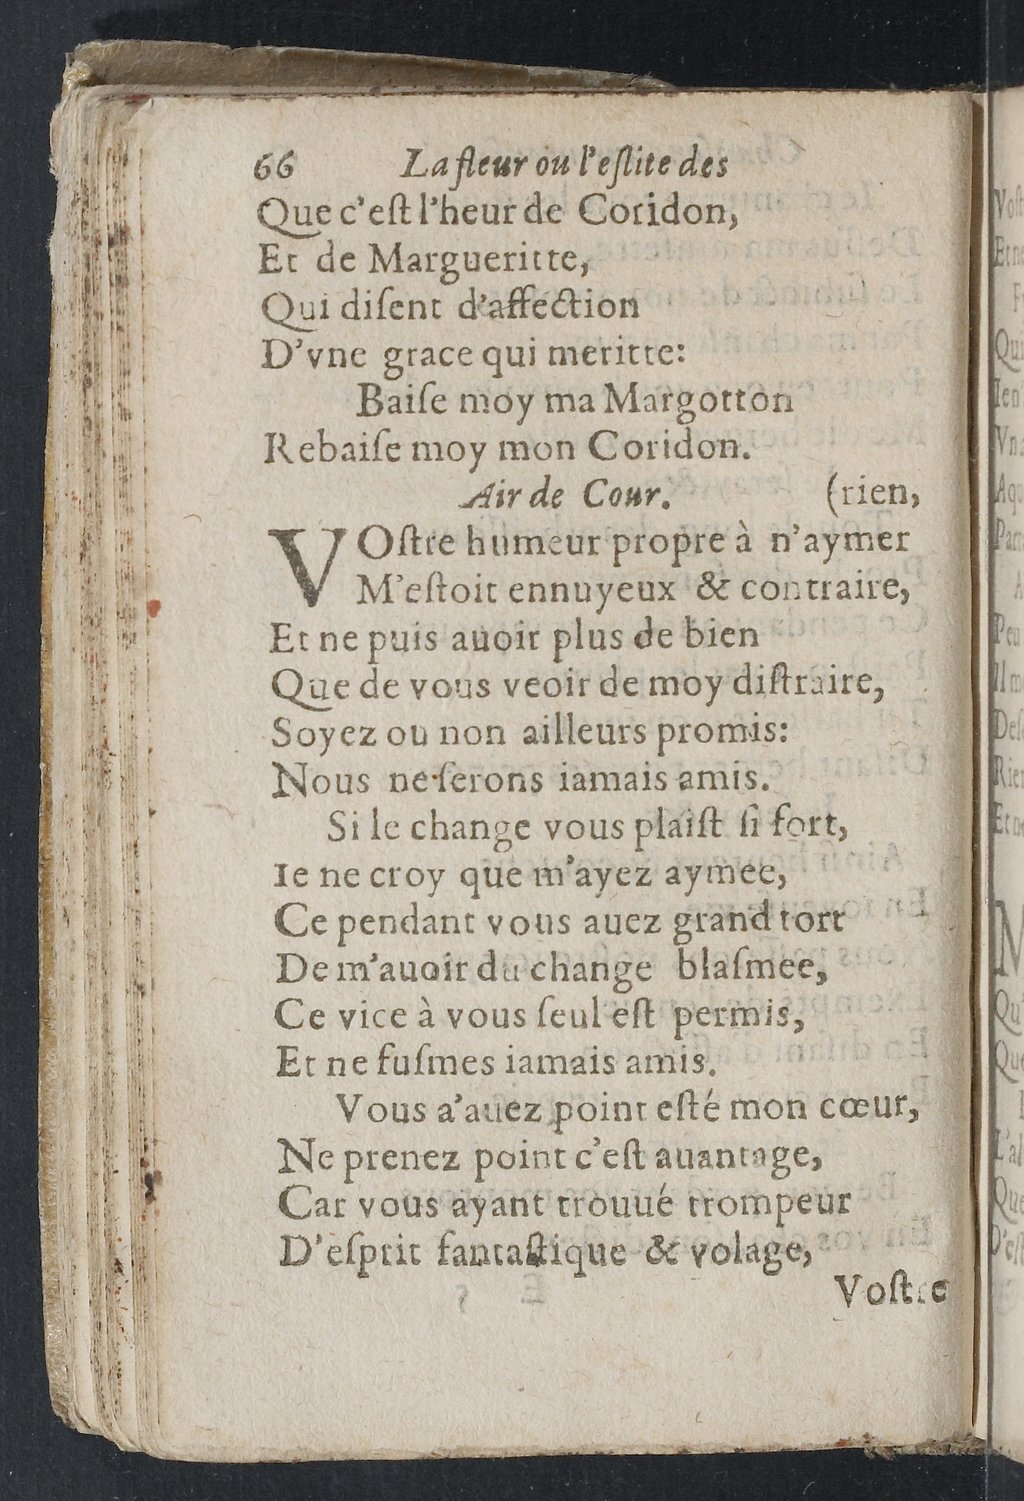 66 La fleur ou l'eſlite des
Que c'eſt l'heur de Coridon,
Et de Margueritte,
Qui diſent d'affection
D'vne grace qui meritte:
Baiſe moy ma Margotton
Rebaiſe moy mon Coridon.
Air de Cour. (rien,
VOſtre humeur propre à n'aymer
M'eſtoit ennuyeux & contraire,
Et ne puis auoir plus de bien
Que de vous veoir de moy diſtraire,
Soyez ou non ailleurs promis:
Nous ne ſerons iamais amis.
Si le change vous plaiſt ſi fort,
Ie ne croy que m'ayez aymee,
Ce pendant vous auez grand tort
De m'auoir du change blaſmee,
Ce vice à vous ſeul eſt permis,
Et ne fuſmes iamais amis.
Vous a'auez point eſté mon cœur,
Ne prenez point c'eſt auantage,
Car vous ayant trouué trompeur
D'eſprit fantaſtique & volage,
Voſtre